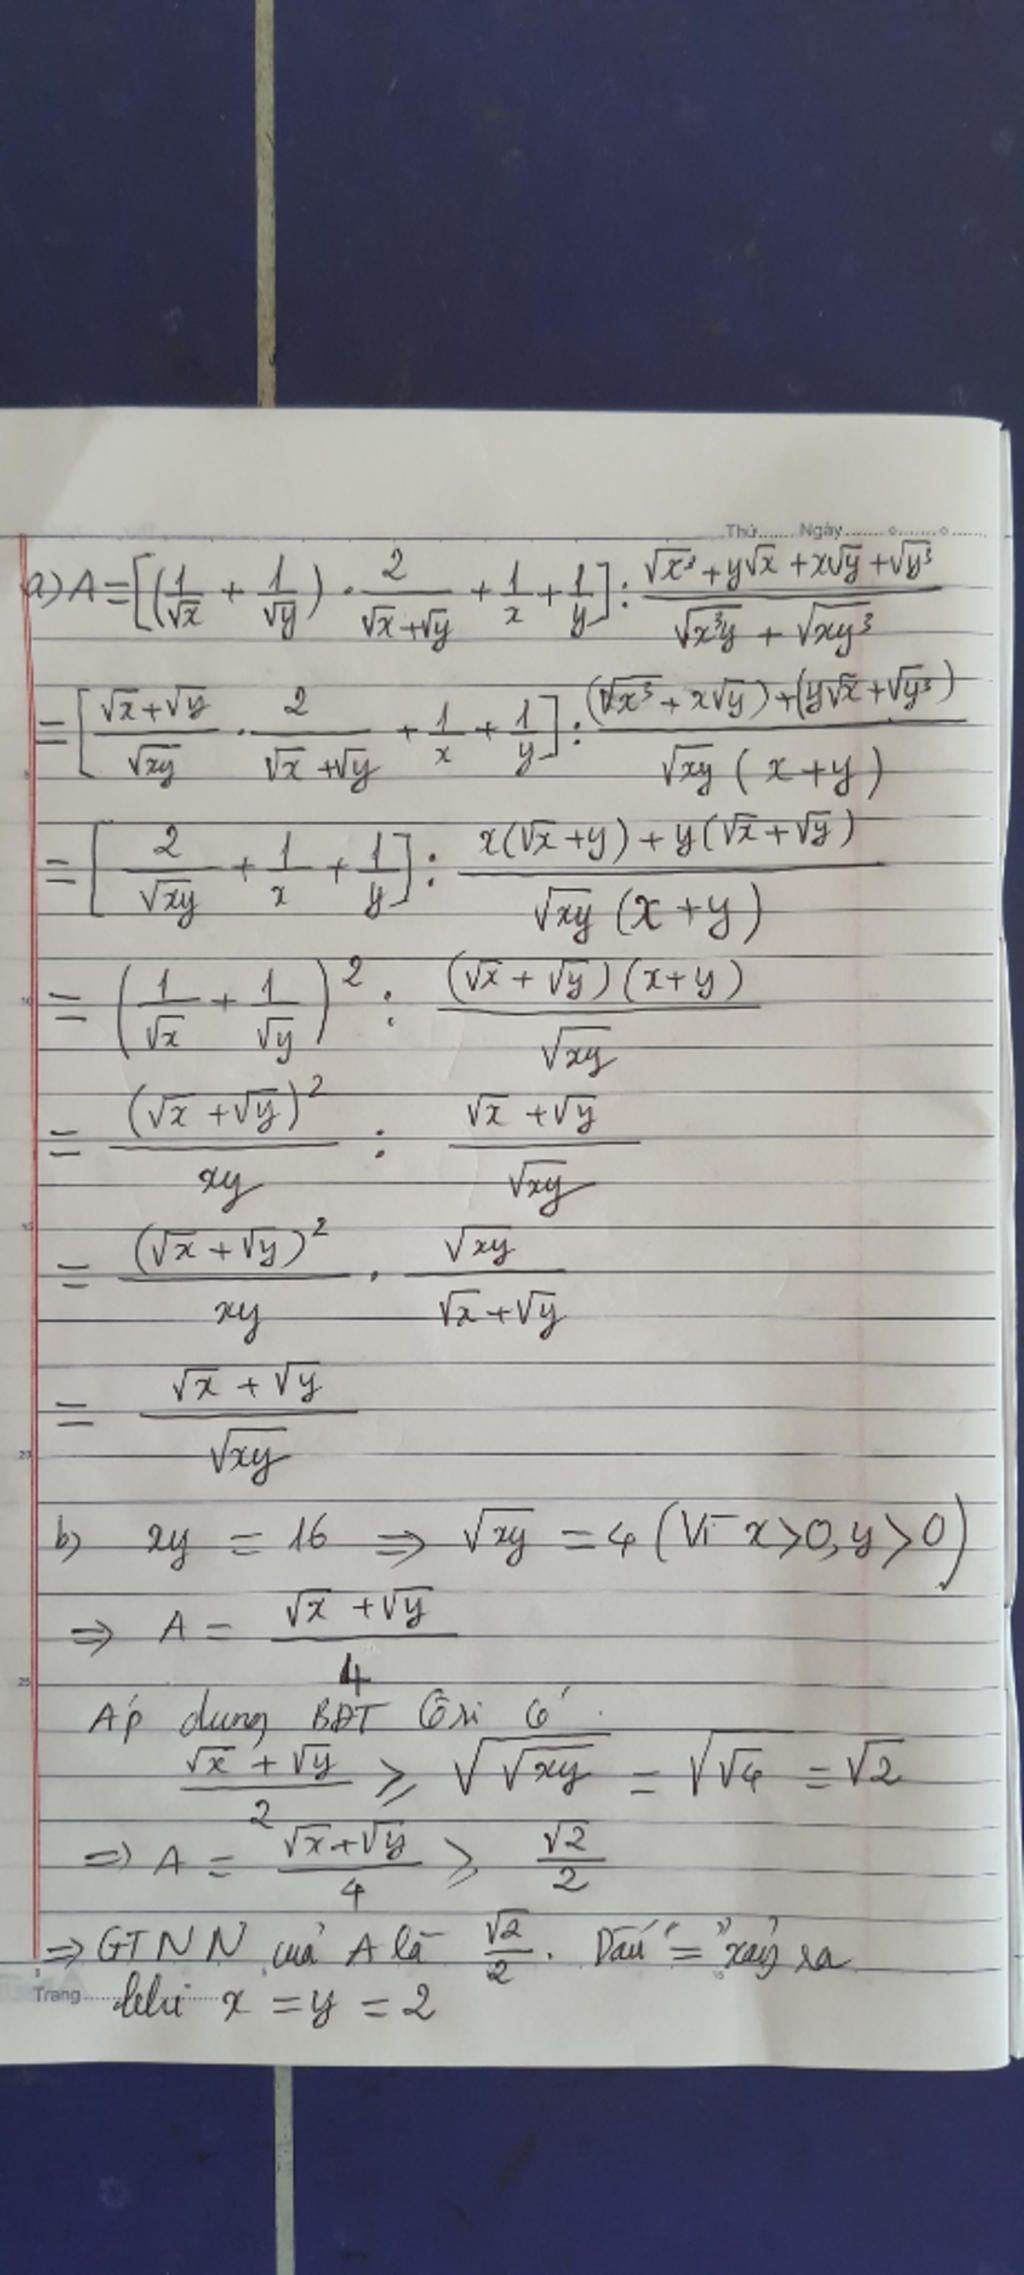 Thứ....... Ngày.......o.......o......
a) A = [(1/√x + 1/√y) . 2/(√x+√y) + 1/x + 1/y] : (√x³ + y√x + x√y + √y³)/(√x³y + √xy³)
= [(√x+√y)/√xy . 2/(√x+√y) + 1/x + 1/y] : ((√x³ + x√y) + (y√x + √y³))/(√xy (x+y))
= [2/√xy + 1/x + 1/y] : (x(√x+y) + y(√x+√y))/(√xy (x+y))
= (1/√x + 1/√y)² : ((√x + √y)(x+y))/√xy
= (√x+√y)²/xy : (√x+√y)/√xy
= (√x+√y)²/xy . √xy/(√x+√y)
= (√x + √y)/√xy
b) xy = 16 ⇒ √xy = 4 (Vì x>0, y>0)
⇒ A = (√x + √y)/4
Áp dụng BĐT Côsi có
(√x + √y)/2 ⩾ √√xy = √√4 = √2
⇒ A = (√x+√y)/4 ⩾ √2/2
⇒ GTNN của A là √2/2. Dấu "=" xảy ra
Trang
khi x = y = 2